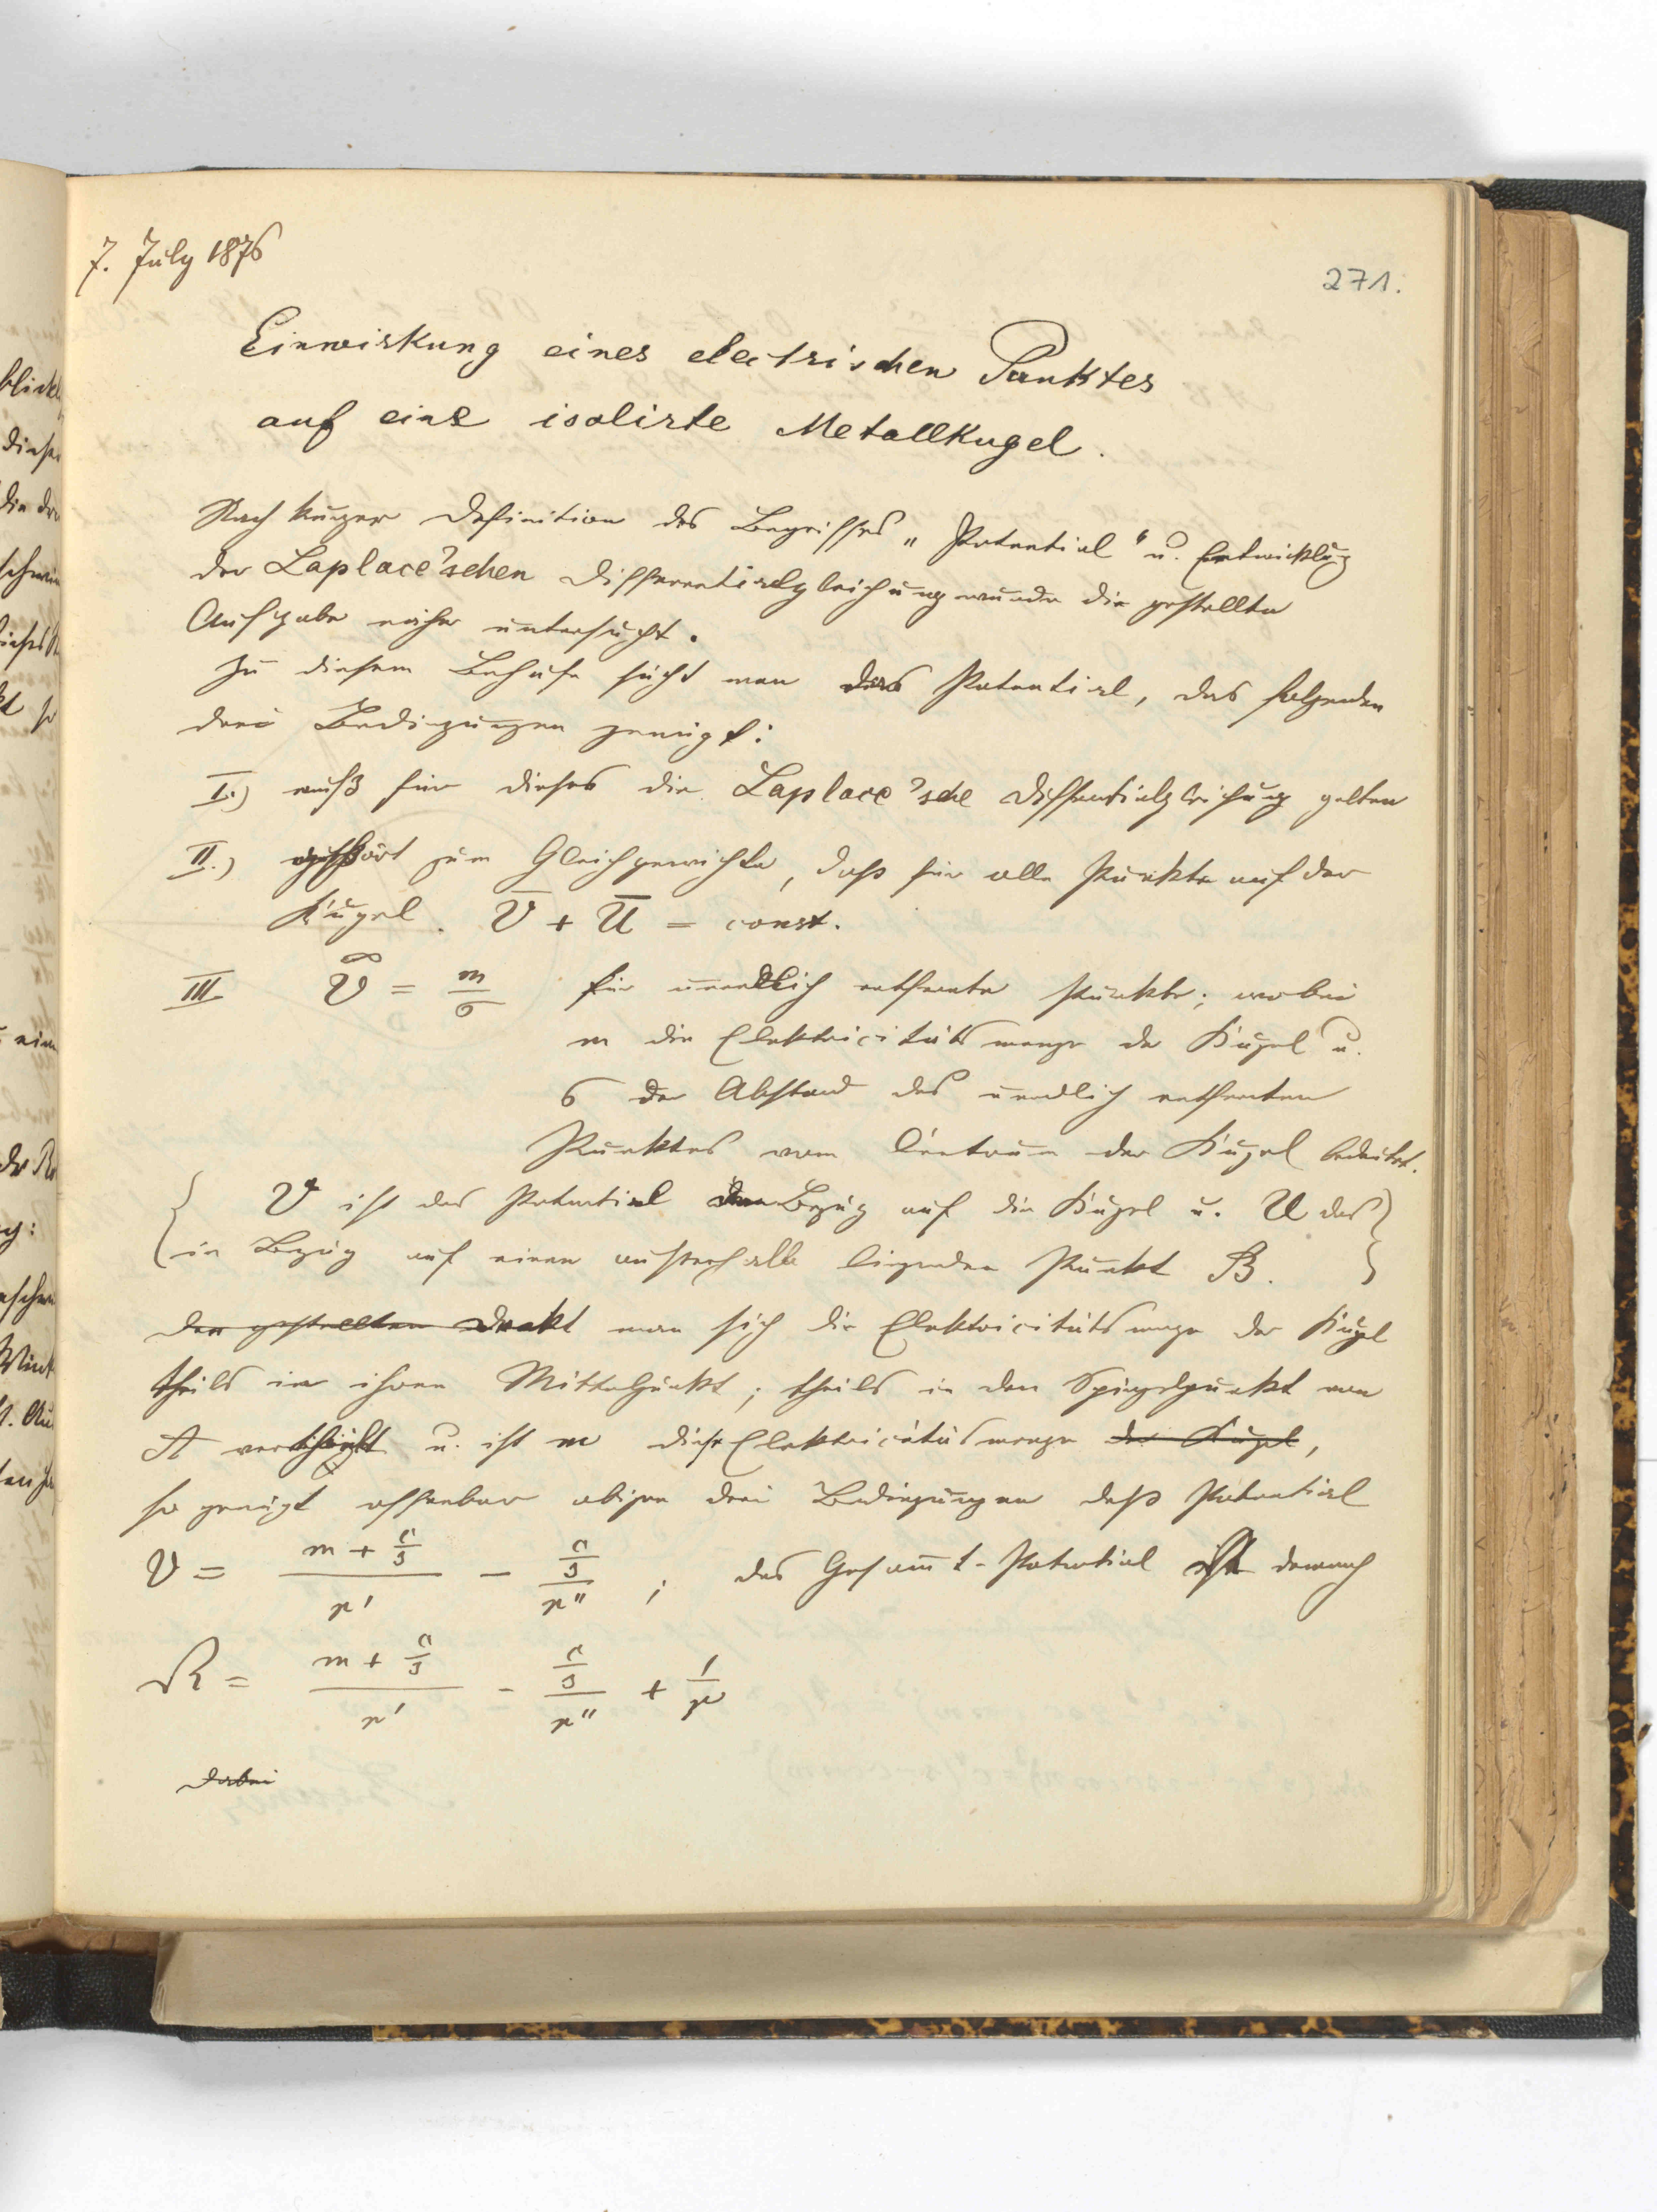 7. July 1876
271.
Einwirkung eines electrischen Punktes
auf eine isolirte Metallkugel.
Nach kurzer Definition des Begriffes „Potential“ u. Entwicklung
der Laplace'schen Differentialgleichung wurde die gestellte
Aufgabe näher untersucht.
Zu diesem Behufe sucht man das Potential, das folgenden
drei Bedingungen genügt:
I.) muß für dieses die Laplace'sche Differentialgleichung gelten
II.) gehört zum Gleichgewichte, daß für alle Punkte auf der
Kugel. V̅ + U̅ = const.
III V^∞ = m/σ für unendlich entfernte Punkte; wobei
m die Elektricitätsmenge der Kugel u.
σ der Abstand des unendlich entfernten
Punktes vom Centrum der Kugel bedeutet.
{ V ist das Potential in Bezug auf die Kugel u. U das }
{ in Bezug auf einen außerhalb liegenden Punkt }
Der gestellten Denkt man sich die Elektricitätsmenge der Kugel
theils in ihren Mittelpunkt; theils in den Spiegelpunkt von
A u. ist m diese Elektricitätsmenge der Kugel,
so genügt offenbar obigen drei Bedingungen daß Potential
V = (m + c/s)/r' − (c/s)/r'' ; das Gesam̅t-Potential ist demnach
R = (m + c/s)/r' − (c/s)/r'' + 1/r
Dabei